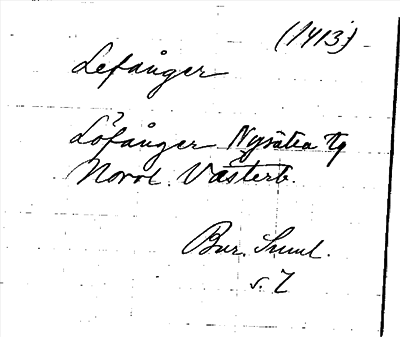 (1413)
Lefånger
?
Löfånger Nysätra tg
Norra Västerb.
Bur. Suml.
s. 7